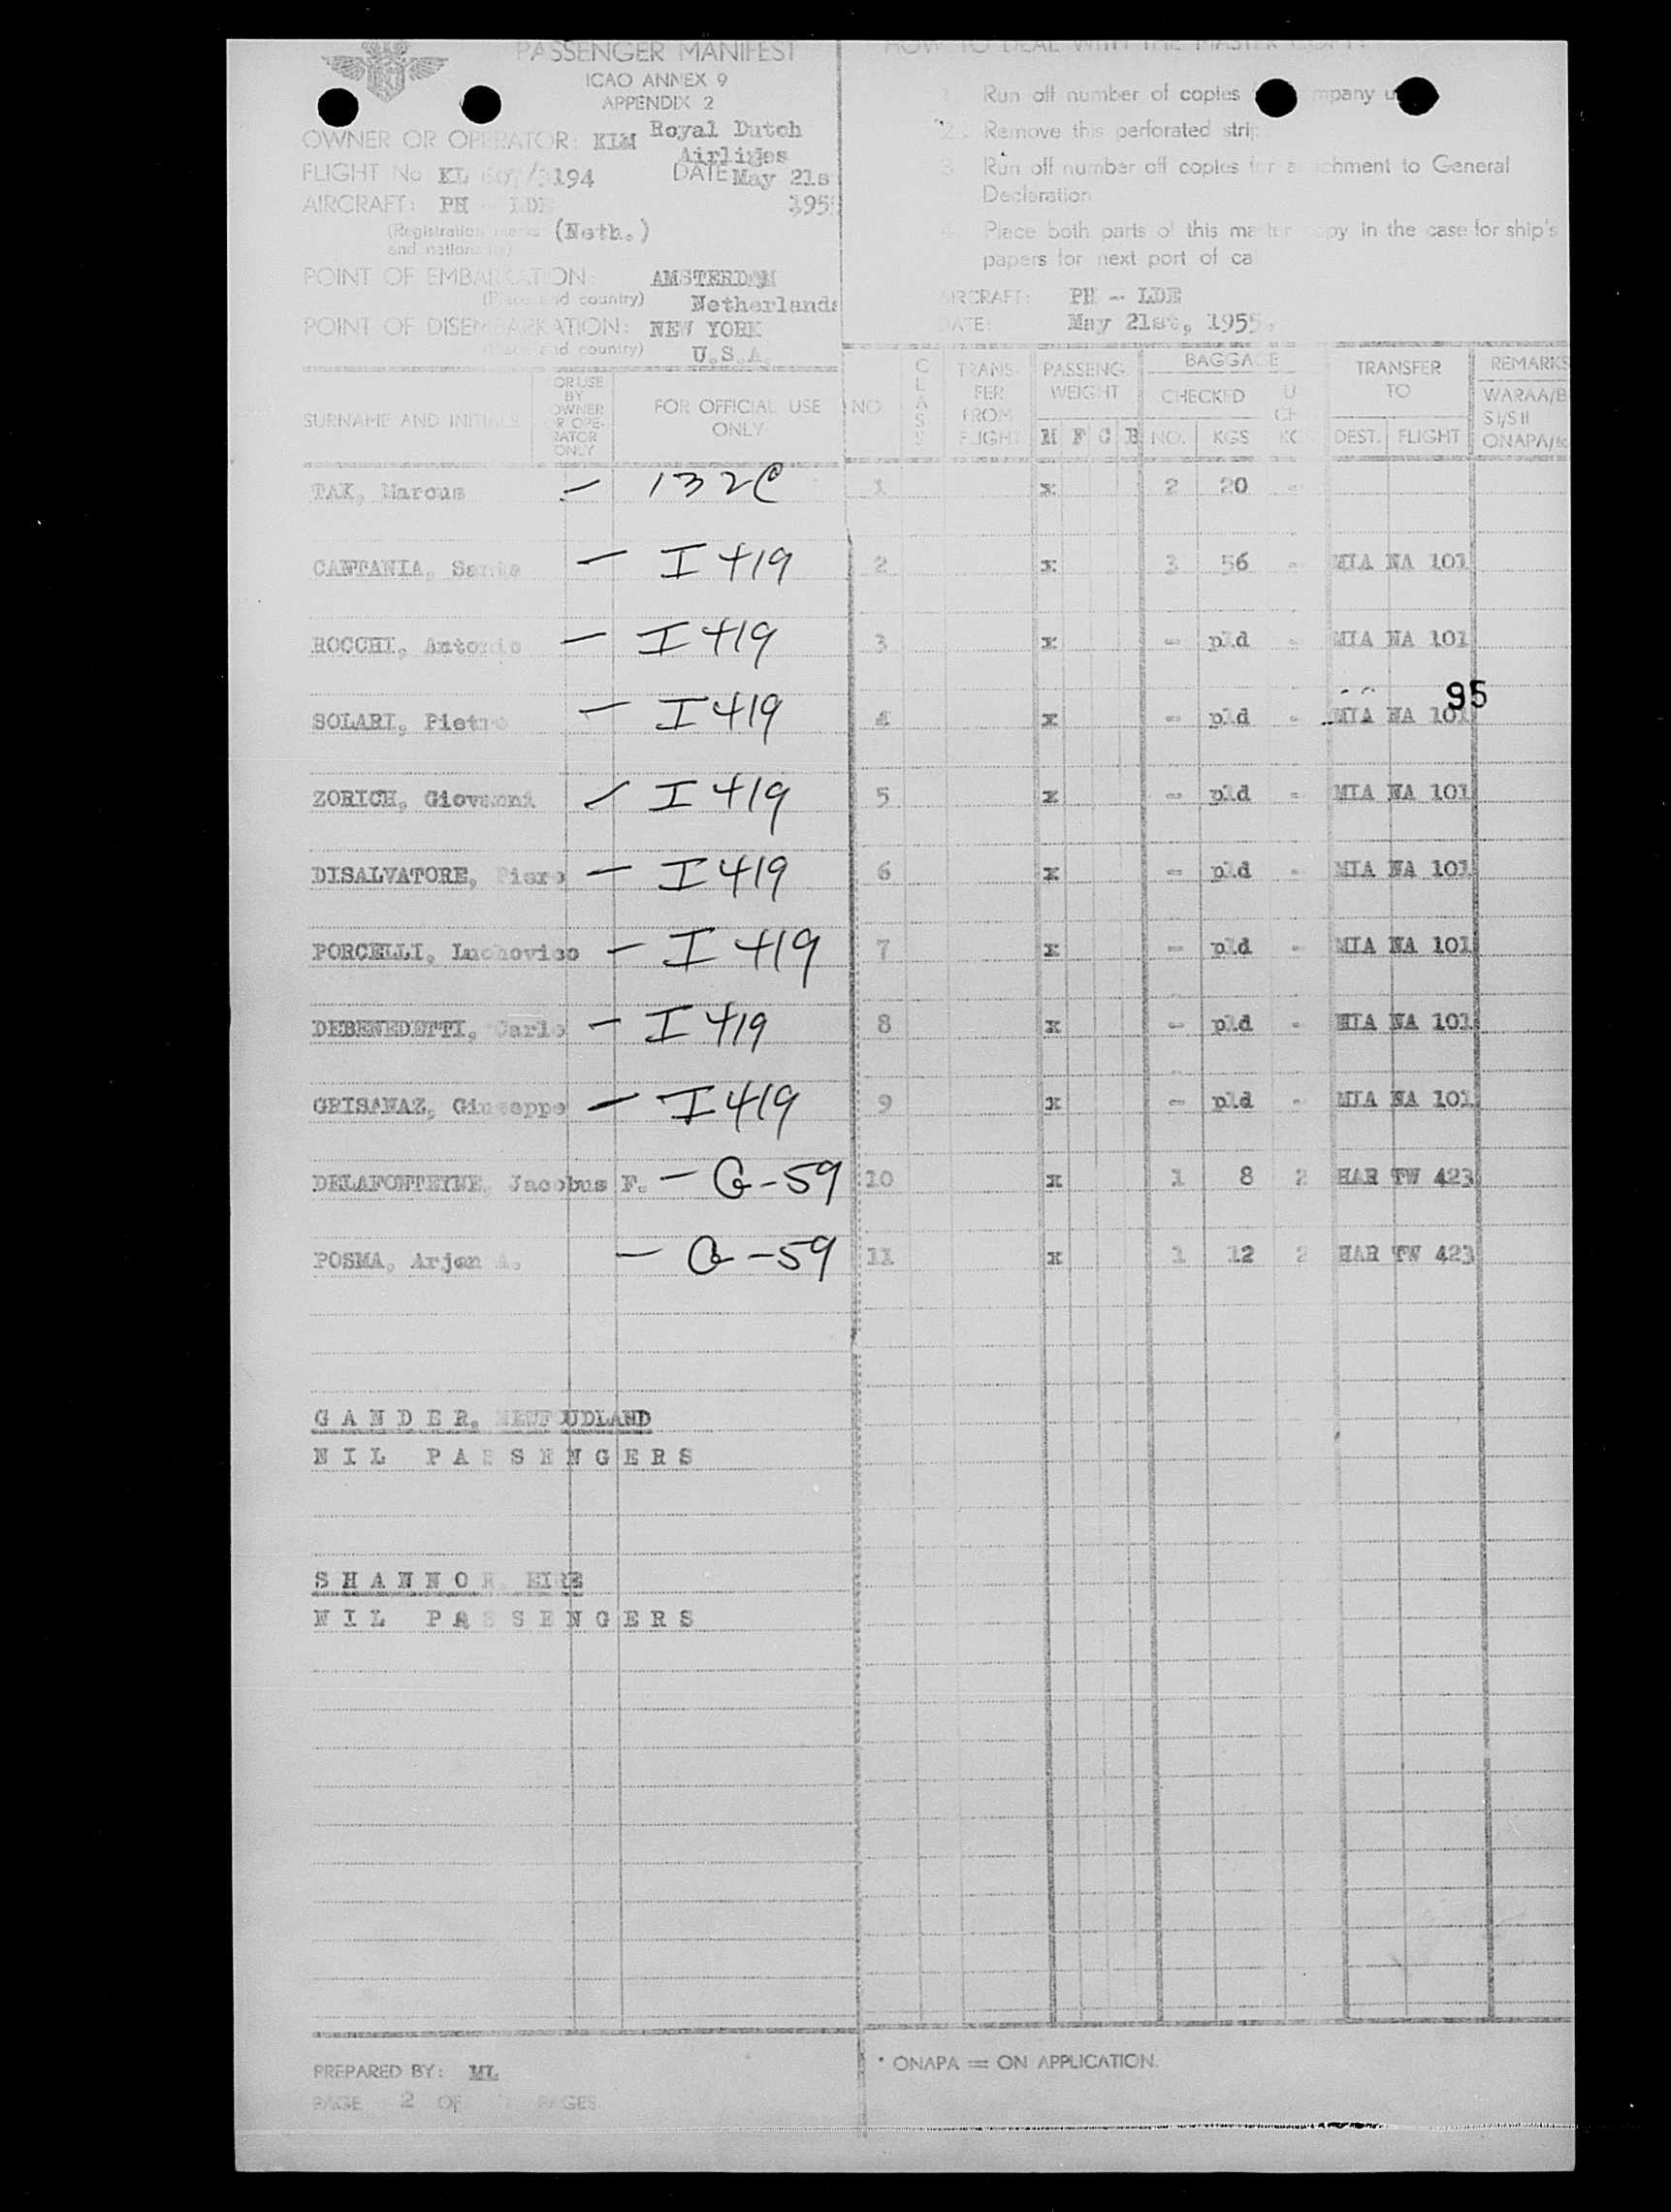 PASSENGER MANIFEST
ICAO ANNEX 9
APPENDIX 2
OWNER OR OPERATOR: KLM Royal Dutch
Airlines
FLIGHT No KL 607/3194 DATE May 21s
AIRCRAFT: PH - LDE 195
(Registration marks (Neth.)
and nationality)
POINT OF EMBARKATION: AMSTERDAM
(Place and country) Netherlands
POINT OF DISEMBARKATION: NEW YORK
(Place and country) U.S.A.
HOW TO DEAL WITH THE MASTER COPY:
1. Run off number of copies mpany u
2. Remove this perforated strip
3. Run off number off copies for a chment to General
Declaration
4. Place both parts of this master opy in the case for ship's
papers for next port of ca
AIRCRAFT: PH - LDE
DATE: May 21st, 1955.
SURNAME AND INITIALS
OR USE
BY
OWNER
OR OPE-
RATOR
ONLY
FOR OFFICIAL USE
ONLY
NO.
CLASS
TRANS-
FER
FROM
FLIGHT
PASSENG.
WEIGHT
M F C B
BAGGAGE
CHECKED U
CH
NO. KGS KG
TRANSFER
TO
DEST. FLIGHT
REMARKS
WARAA/B
S I/S II
ONAPA/
TAK, Marcus — 132C 1 x 2 20 -
CANTANIA, Sante — I 419 2 x 3 56 - MIA NA 101
ROCCHI, Antonio — I 419 3 x - pld - MIA NA 101
95
SOLARI, Pietro — I 419 4 x - pld - MIA NA 101
ZORICH, Giovanni — I 419 5 x - pld - MIA NA 101
DISALVATORE, Piero — I 419 6 x - pld - MIA NA 101
PORCELLI, Luchovico — I 419 7 x - pld - MIA NA 101
DEBENEDETTI, Carlo — I 419 8 x - pld - MIA NA 101
GRISANAZ, Giuseppe — I 419 9 x - pld - MIA NA 101
DELAFONTEYNE, Jacobus F. — G-59 10 x 1 8 2 HAR TW 423
POSMA, Arjen A. — G-59 11 x 1 12 2 HAR TW 423
G A N D E R, NEWFOUDLAND
N I L P A S S E N G E R S
S H A N N O N, EIRE
N I L P A S S E N G E R S
PREPARED BY: ML
PAGE 2 OF PAGES
* ONAPA = ON APPLICATION.